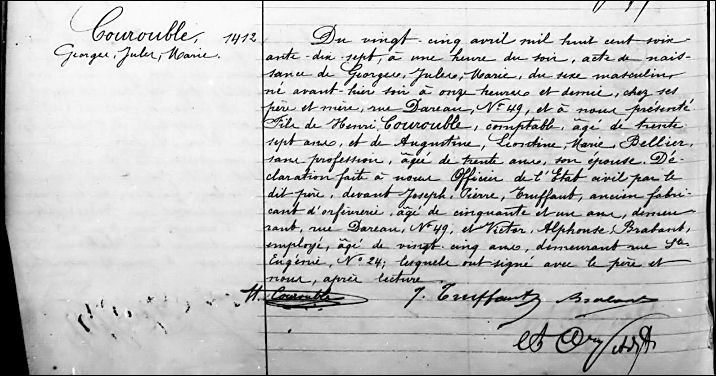 Courouble, 1412
Georges, Jules, Marie.
Du vingt-cinq avril mil huit cent soix-
ante-dix-sept, à une heure du soir, acte de nais-
sance de Georges, Jules, Marie, du sexe masculin,
né avant-hier soir à onze heures et demie, chez ses
père et mère, rue Dareau, N° 49, et à nous présenté
Fils de Henri Courouble, comptable, âgé de trente
sept ans, et de Augustine, Léontine Marie Bellier,
sans profession, âgée de trente ans, son épouse. Dé-
claration faite à nous Officier de l'Etat civil par le
dit père, devant Joseph, Pierre, Truffaut, ancien fabri-
cant d'orfèvrerie, âgé de cinquante et un ans, demeu-
rant, rue Dareau, N° 49, et Victor, Alphonse, Brabant,
employé, âgé de vingt cinq ans, demeurant rue Ste
Eugénie, N° 24; lesquels ont signé avec le père et
nous, après lecture
H. Courouble J. Truffaut Brabant